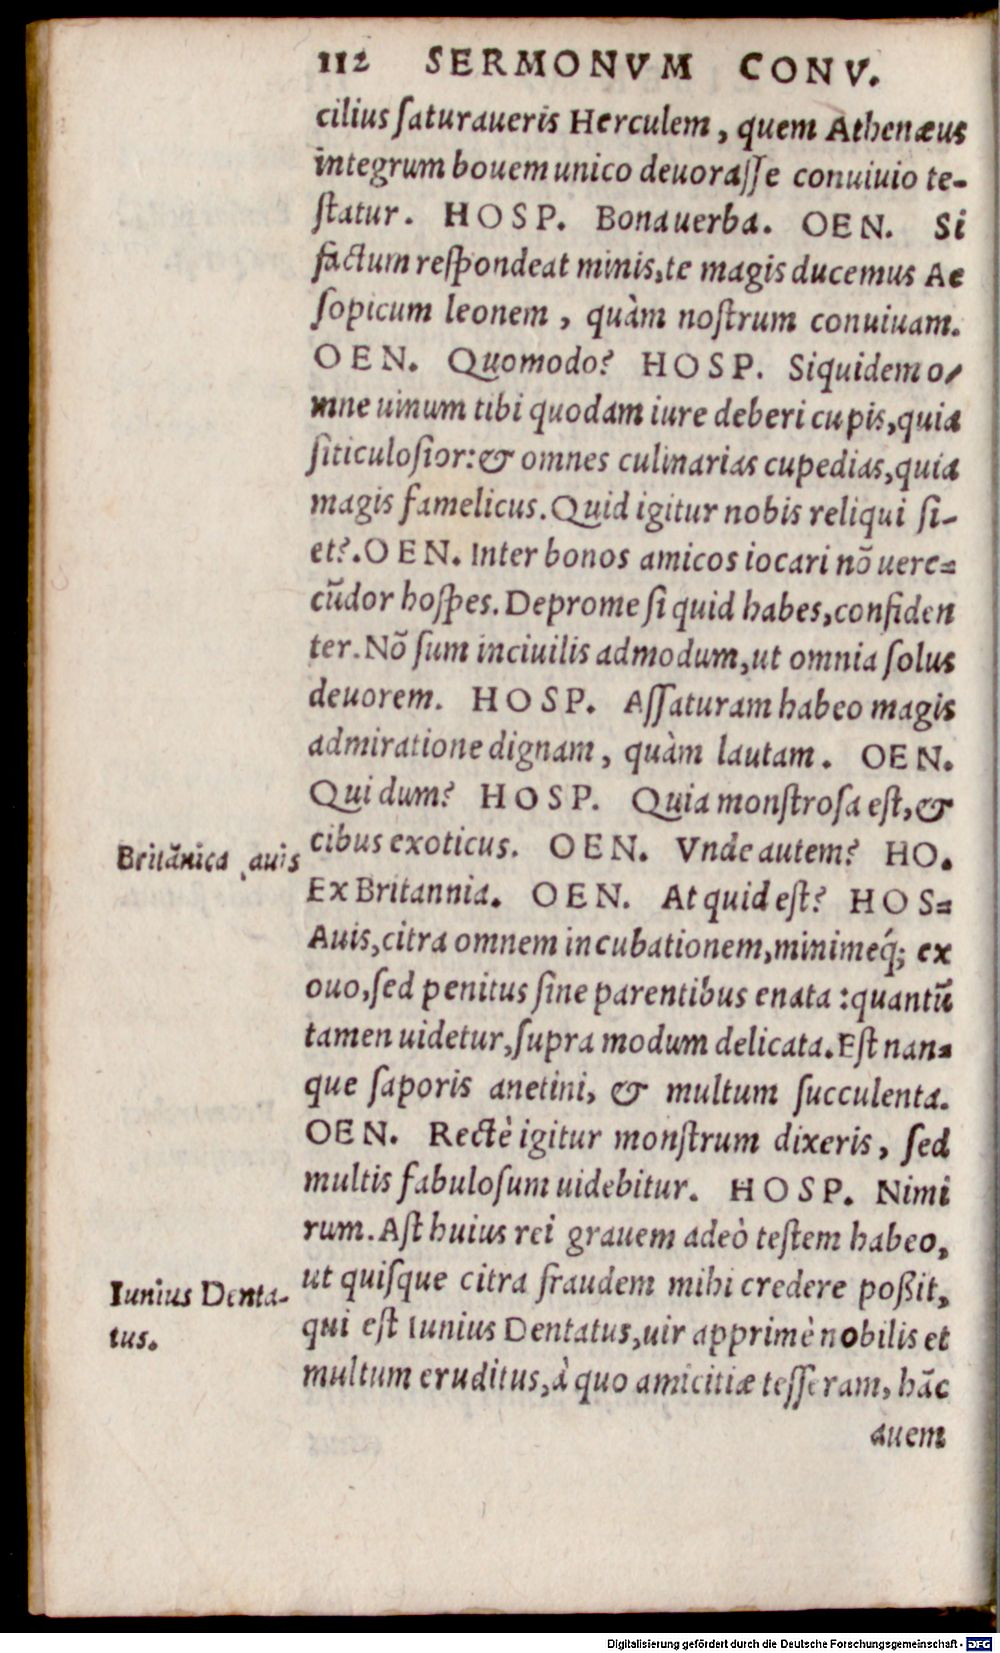 112 SERMONVM CONV.
cilius ſaturaueris Herculem, quem Athenæus
integrum bouem unico deuoraſſe conuiuio te-
ſtatur. HOSP. Bona uerba. OEN. Si
factum reſpondeat minis, te magis ducemus Ae
ſopicum leonem, quàm noſtrum conuiuam.
OEN. Quomodo? HOSP. Siquidem o-
mne uinum tibi quodam iure deberi cupis, quia
ſiticuloſior: & omnes culinarias cupedias, quia
magis famelicus. Quid igitur nobis reliqui ſi-
et?. OEN. Inter bonos amicos iocari nõ uere=
cũdor hoſpes. Deprome ſi quid habes, confiden
ter. Nõ ſum inciuilis admodum, ut omnia ſolus
deuorem. HOSP. Aſſaturam habeo magis
admiratione dignam, quàm lautam. OEN.
Qui dum? HOSP. Quia monſtroſa eſt, &
Britãnica auis
cibus exoticus. OEN. Vnde autem? HO.
Ex Britannia. OEN. At quid eſt? HOS=
Auis, citra omnem incubationem, minimeq́; ex
ouo, ſed penitus ſine parentibus enata: quantũ
tamen uidetur, ſupra modum delicata. Eſt nan=
que ſaporis anetini, & multum ſucculenta.
OEN. Rectè igitur monſtrum dixeris, ſed
multis fabuloſum uidebitur. HOSP. Nimi
rum. Aſt huius rei grauem adeò teſtem habeo,
Iunius Denta-
tus.
ut quiſque citra fraudem mihi credere poßit,
qui eſt Iunius Dentatus, uir apprimè nobilis et
multum eruditus, à quo amicitiæ teſſeram, hãc
auem
Digitalisierung gefördert durch die Deutsche Forschungsgemeinschaft - DFG